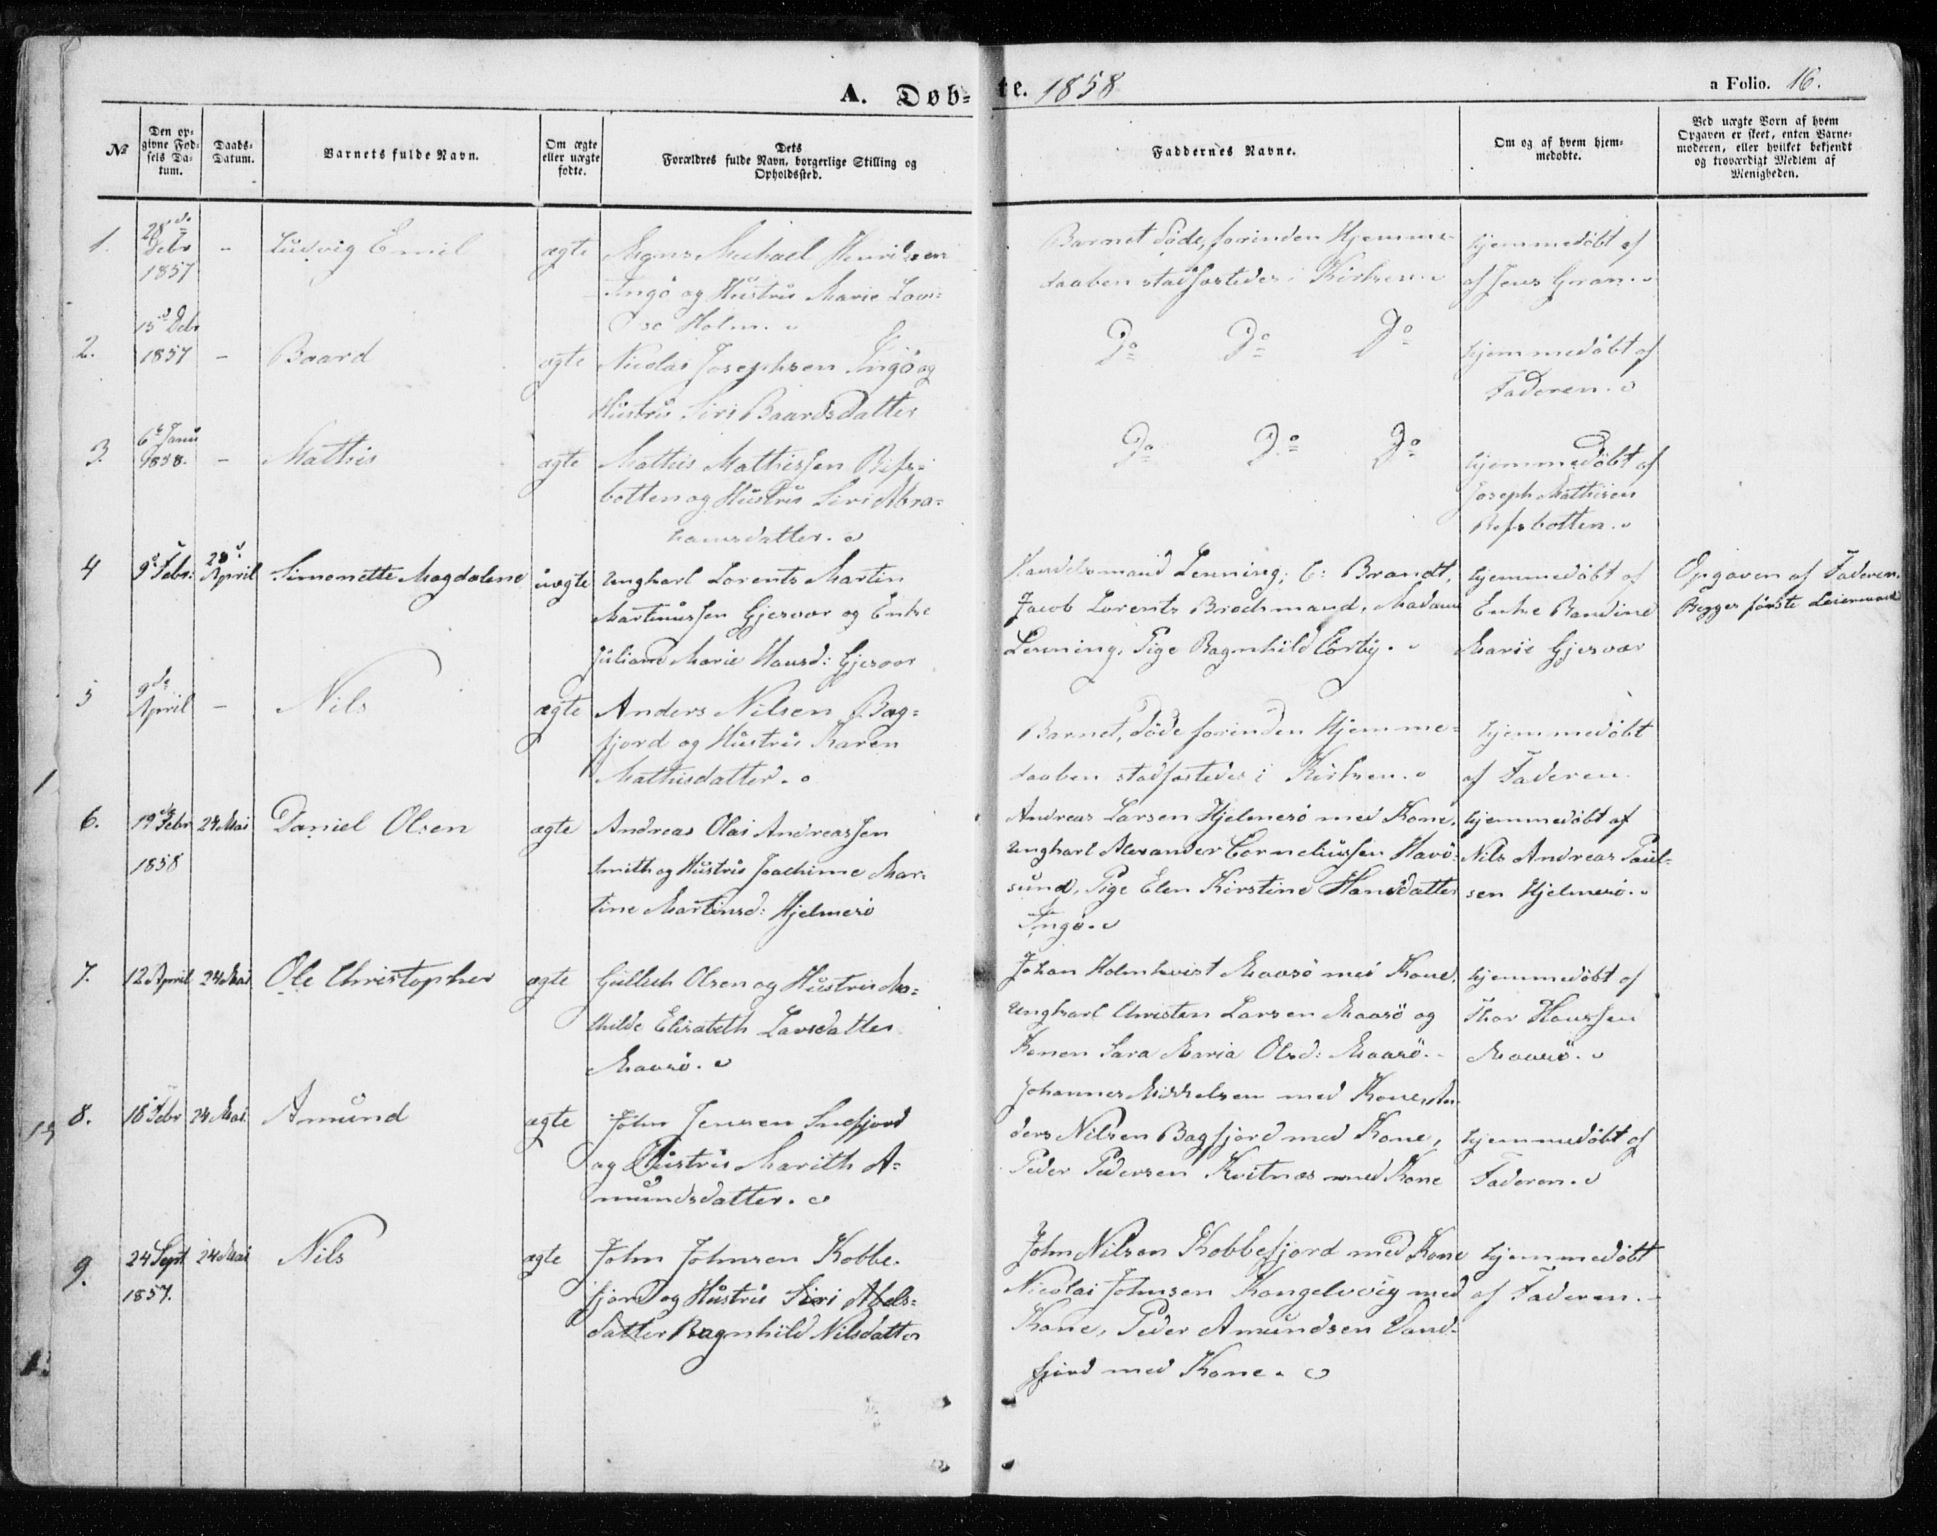 A. Døb-te. 1858
a Folio. 16.
№
Den op-
givne Fød-
sels Da-
tum.
Daabs-
Datum.
Barnets fulde Navn.
Om ægte
eller uægte
fødte.
Dets
Forældres fulde Navn, borgerlige Stilling og
Opholdssted.
Faddernes Navne.
Om og af hvem hjem-
medøbte.
Ved uægte Børn af hvem
Opgaven er skeet, enten Barne-
moderen, eller hvilket bekjendt
og troværdigt Medlem af
Menigheden.
1.
28de
Debr
1857
-
Ludvig Emil
ægte
Mons Michael Henriksen
Ingö og Hustru Marie Lovi-
se Holm.
Barnet døde, forinden Hjemme-
daaben stadfæstedes i Kirken.
hjemmedöbt af
af Jens Gran.
2.
15de Debr
1857
-
Baard
ægte
Nicolai Josephsen Ingö og
Hustru Siri Baardsdatter
Do Do Do
hjemmedöbt af
Faderen.
3.
6te Janu
1858.
-
Mathis
ægte
Mathis Mathissen Refs-
botten og Hustru Siri Abra-
hamsdatter.
Do Do Do
hjemmedöbt af
Joseph Mathisen
Refsbotten.
4
9de Febr:
28de April
Simonette Magdalene
uægte
Ungkarl Lorents Martin
Martinussen Gjesvær og Enke
Juliane Marie Hansd: Gjesvær
Handelsmand Lenning, C: Brandt,
Jacob Lorents Brochmand, Madame
Lenning, Pige Ragnhild Corby.
hjemmedöbt af
Enke Randine
Marie Gjesvær
Opgaven af Faderen.
Begges første Leiermaal
5
9de
April
-
Nils
ægte
Anders Nilsen Bag-
fjord og Hustru Karen
Mathisdatter.
Barnet, döde forinden Hjemme-
daaben stadfæstedes i Kirken.
hjemmedöbt
af Faderen.
6.
19de Febr
1858
24 Mai
Daniel Olsen
ægte
Andreas Olai Andreassen
Smith og Hustru Joachime Mar-
tine Martinsd: Hjelmesö
Andreas Larsen Hjelmesö med Kone,
Ungkarl Alexander Corneliussen Havö-
sund, Pige Elen Kirstine Hansdatter
Ingö.
hjemmedöbt af
Nils Andreas Paul-
sen Hjelmesö.
7.
12 April
24 Mai
Ole Christopher
ægte
Gullich Olsen og Hustru Ma-
thilde Elisabeth Larsdatter
Maasö.
Johan Holmkvist Maasö med Kone,
Ungkarl Christen Larsen Maasö og
Konen Sara Maria Olsd: Maasö.
hjemmedöbt af
Thor Hanssen
Maasö.
8.
18 Febr
24 Mai
Amund
ægte
John Jensen Snefjord
og Hustru Marith A-
mundsdatter.
Johannes Mikkelsen med Kone, An-
ders Nilsen Bagfjord med Kone,
Peder Pedersen Kvitnæs med Kone
hjemmedöbt af
Faderen.
9.
24 Sept
1857.
24 Mai
Nils
ægte
John Johnsen Kobbe-
fjord og Hustru Siri Abels-
datter Ragnhild Nilsdatter
John Nilsen Kobbefjord med Kone
Nicolai Johnsen Kongelvvig med
Kone, Peder Amundsen Vand-
fjord med Kone.
hjemmedöbt
af Faderen.